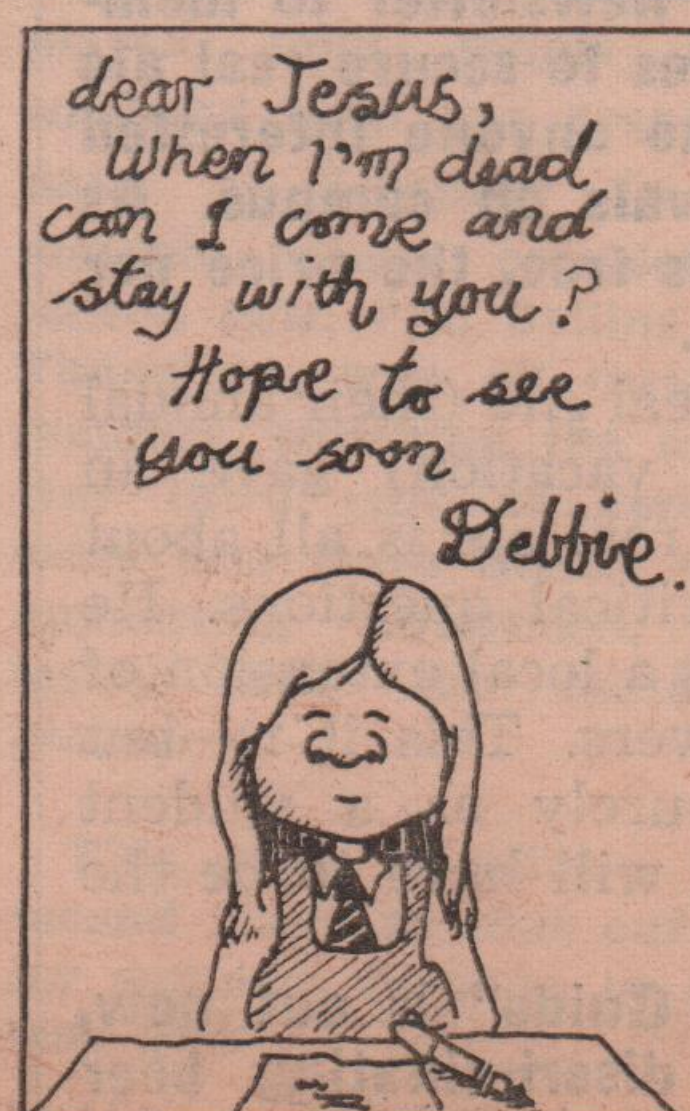 dear Jesus,
When I'm dead
can I come and
stay with you?
Hope to see
you soon
Debbie.